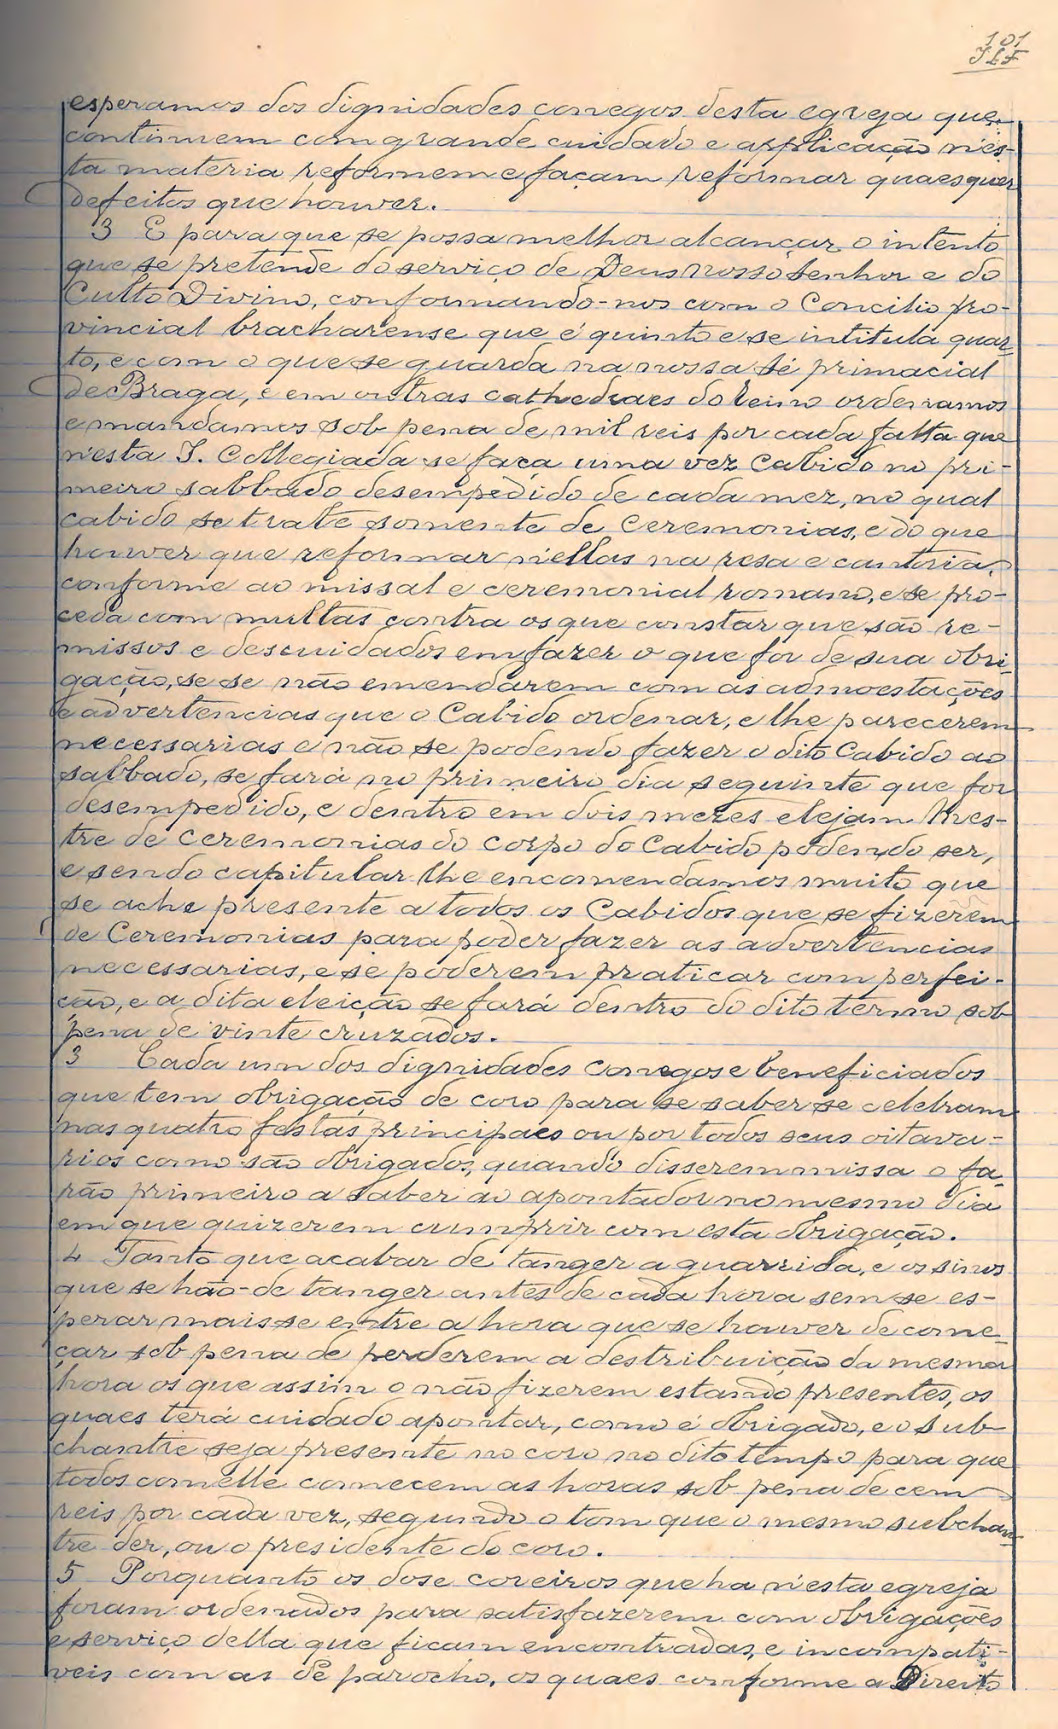 101
esperamos dos dignidades conegos desta egreja que
continuem com grande cuidado e applicação n'es-
ta materia reformem e façam reformar quaesquer
defeitos que houver.
3 E para que se possa melhor alcançar o intento
que se pretende do serviço de Deus nosso Senhor e do
Culto Divino, conformando-nos com o Concilio pro-
vincial bracharense que é quinto e se intitula quar-
to, e com o que se guarda na nossa Sé primacial
de Braga, e em outras cathedraes do Reino ordenamos
e mandamos sob pena de mil reis por cada falta que
n'esta I. Collegiada se faça uma vez Cabido no pri-
meiro sabbado desempedido de cada mez, no qual
cabido se trate somente de Ceremonias, e do que
houver que reformar n'ellas na resa e cantoria,
conforme ao missal e ceremonial romano, e se pro-
ceda com multas contra os que constar que são re-
missos e descuidados em fazer o que for de sua obri-
gação, se se não emendarem com as admoestações
e advertencias que o Cabido ordenar, e lhe parecerem
necessarias e não se podendo fazer o dito Cabido ao
sabbado, se fará no primeiro dia seguinte que for
desempedido, e dentro em dois mezes elejam Mes-
tre de Ceremonias do corpo do Cabido podendo ser,
e sendo capitular lhe encomendamos muito que
se ache presente a todos os Cabidos que se fizerem
de Ceremonias para poder fazer as advertencias
necessarias, e se poderem praticar com perfei-
ção, e a dita eleição se fará dentro do dito termo sob
pena de vinte cruzados.
3 Cada um dos dignidades conegos e beneficiados
que tem obrigação de coro para se saber se celebram
nas quatro festas principaes ou por todos seus oitava-
rios como são obrigados, quando disserem missa o fa-
rão primeiro a saber ao apontador no mesmo dia
em que quizerem cumprir com esta obrigação.
4 Tanto que acabar de tanger a guarrida, e os sinos
que se hão-de tanger antes de cada hora sem se es-
perar mais se entre a hora que se houver de come-
çar sob pena de perderem a destribuição da mesma
hora os que assim o não fizerem estando presentes, os
quaes terá cuidado apontar, como é obrigado, e o sub-
chantre seja presente no coro no dito tempo para que
todos com elle comecem as horas sob pena de cem
reis por cada vez, segundo o tom que o mesmo subchan-
tre der, ou o presidente do coro.
5 Porquanto os dose coreiros que ha n'esta egreja
foram ordenados para satisfazerem com obrigações
e serviço della que ficam encontradas, e incompati-
veis com as de parocho, os quaes conforme a Direito